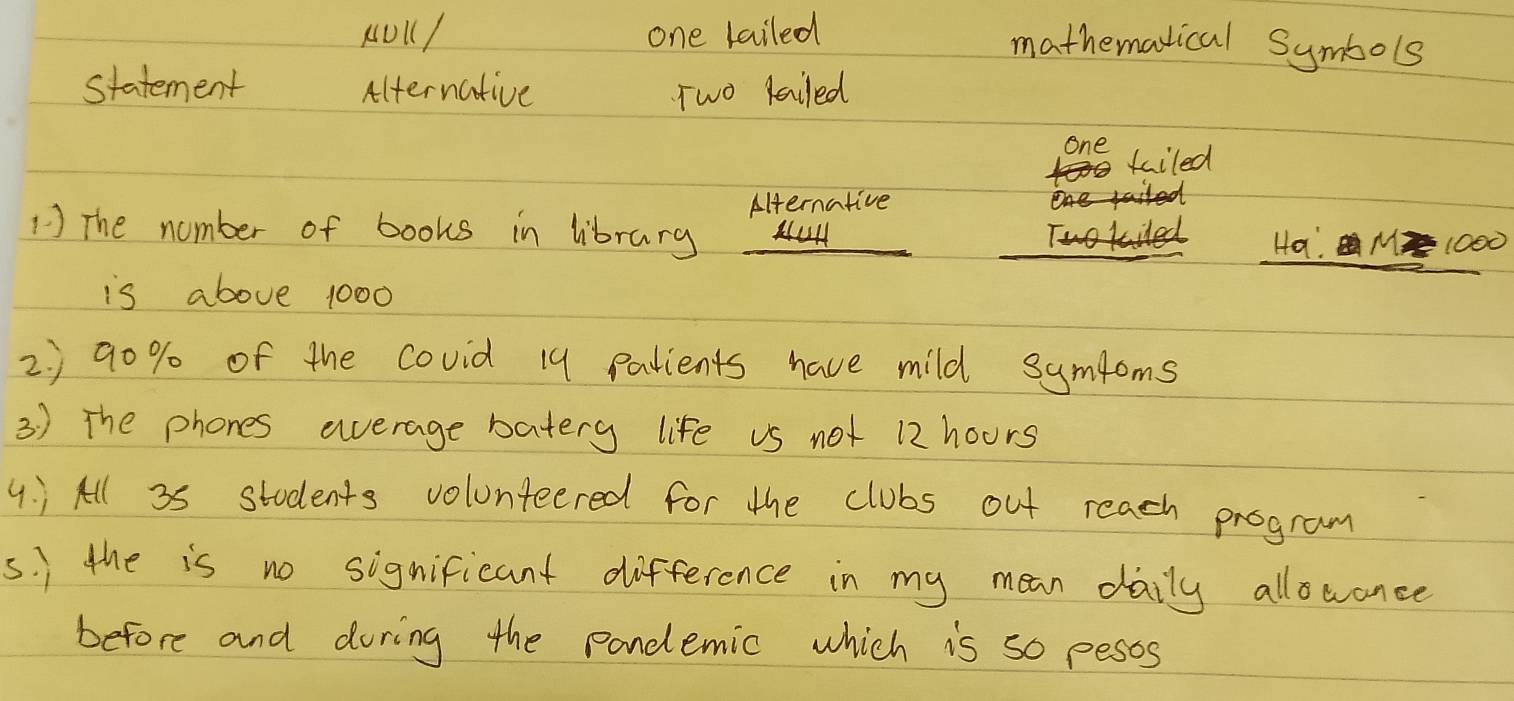 NUll/ one tailed mathematical Symbols
Statement Alternative Two tailed
one
too tailed
Alternative one tailed
1.) The number of books in library Null Two tailed Ha: M 1000
is above 1000
2.) 90% of the covid 19 patients have mild symtoms
3.) The phones average batery life is not 12 hours
4.) All 35 students volunteered for the clubs out reach program
5.) the is no significant difference in my mean daily allowance
before and during the pandemic which is 50 pesos